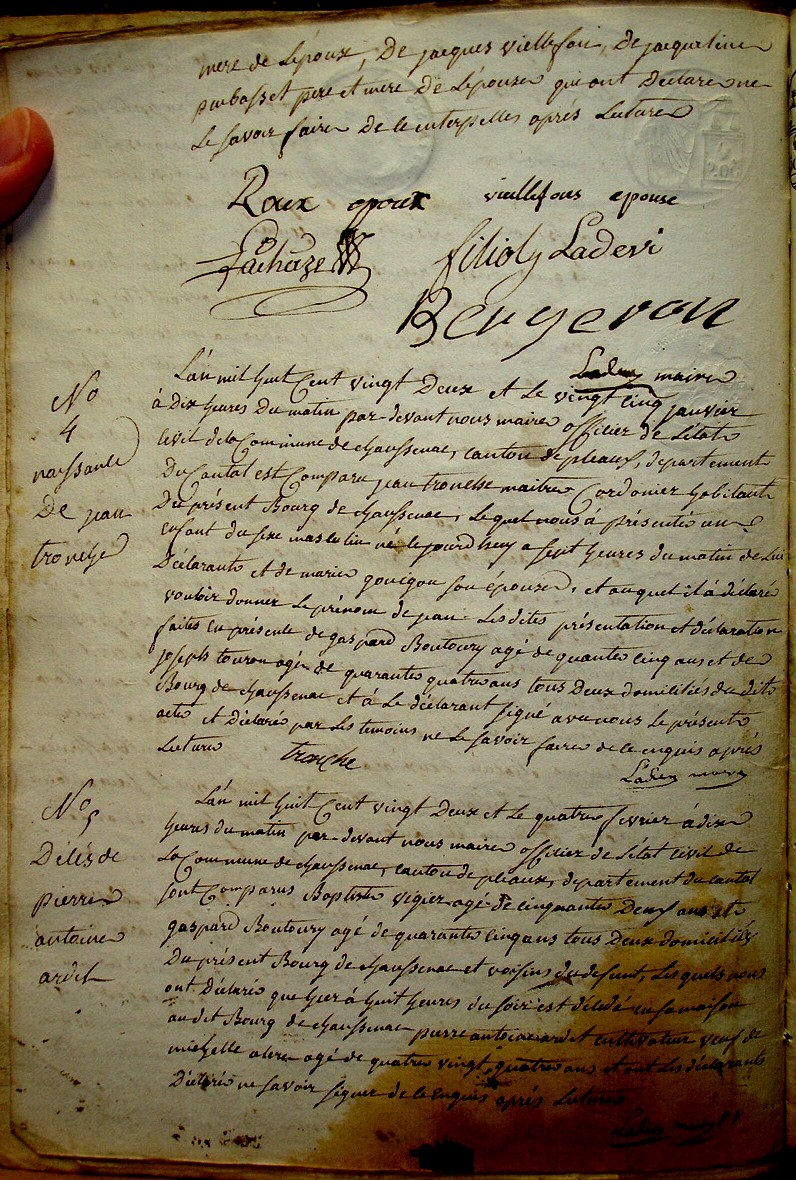 mere de Lépoux, De jacques vieillefon, De jacqueline
pere et mere De Lépouse qui ont Déclaré ne
Le savoir faire De ce interpellés aprés Lecture
Roux epoux vieillefons epouse
Lachaze filioly Ladevi
Bergeron
Ladevi maire
No
4
naissance
De jean
tronche
L'an mil huit Cent vingt Deux et Le vingt cinq janvier
à Dix heures Du matin par-devant nous maire officier De Létat
Civil de la Commune de chaussenac, canton de pleaux, departement
Du Cantal est Comparu jean tronche maitre Cordonier habitant
Du présent Bourg de chaussenac, Lequel nous à présenté un
enfant du sexe masculin né le jourd'huy a sept heures du matin de Lui
Déclarant et de marie gouigou son epouse, et auquel il à déclaré
vouloir donner Le prénom de jean. Les dites présentation et déclaration
faites en présence de gaspard Boutoury agé de quarante cinq ans et de
joseph touron agé de quarante quatre ans tous Deux domiciliés du dit
Bourg de chaussenac et à Le déclarant signé avec nous le présent
acte et Déclaré par Les temoins ne Le savoir faire de ce enquis aprés
Lecture tronche
Ladevi maire
No
5
Décés de
pierre
antoine
ardit
L'an mil huit Cent vingt Deux et Le quatre fevrier à dix
heures du matin par-devant nous maire officier de Létat Civil de
La Commune de chaussenac, canton de pleaux, departement du cantal
sont Comparus Baptiste vigier agé de cinquante Deux ans et
gaspard Boutoury agé de quarante cinq ans tous Deux domiciliés
Du présent Bourg de chaussenac et voisins du defunt, Lesquels nous
ont Déclaré que hier à huit heures du soir est décédé en sa maison
au dit Bourg de chaussenac pierre antoine ardit cultivateur veuf de
michelle agé de quatre vingt quatre ans et ont Les déclarants
Déclaré ne savoir signer de ce enquis aprés Lecture
Ladevi maire